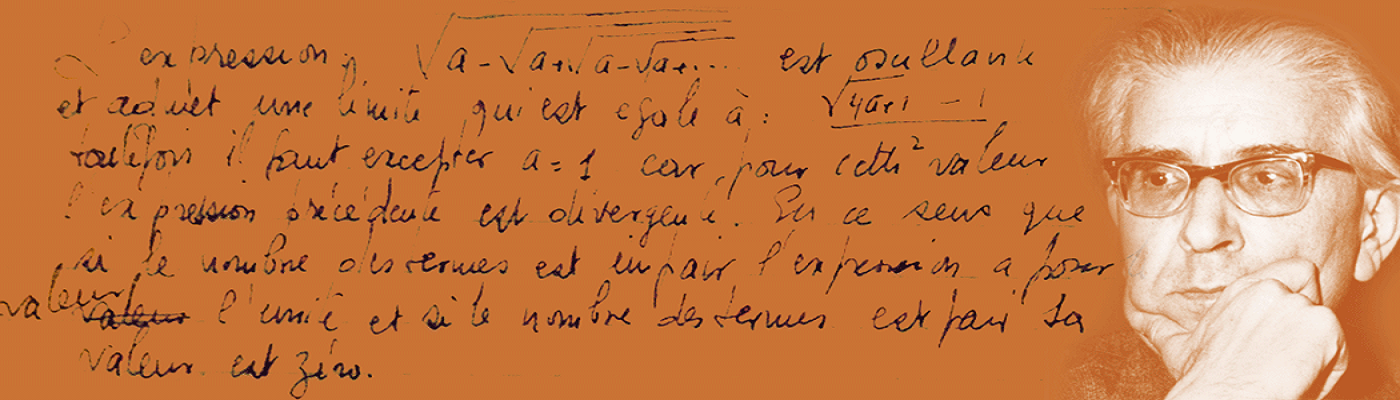 L'expression, √a-√a+√a-√a+... est oscillante
et admet une limite qui est egale à: √4a+1 - 1
2
toutefois il faut excepter a = 1 car, pour cette valeur
l'expression précédente est divergente. En ce sens que
si le nombre des termes est impair l'expression a pour
valeur valeur l'unité et si le nombre des termes est pair sa
valeur est zéro.